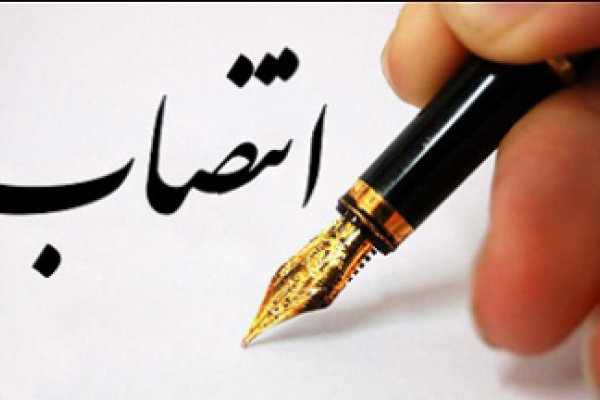 انتصاب